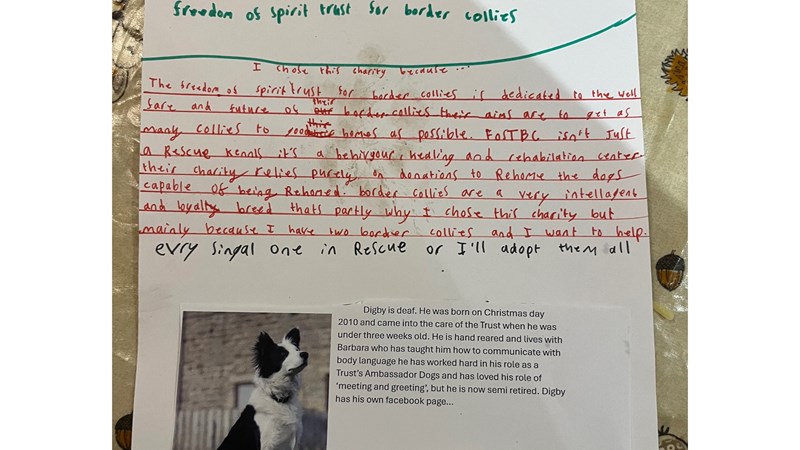 freedom of spirit trust for border collies
I chose this charity because...
The freedom of spirit trust for border collies is dedicated to the well
fare and future of their border collies their aims are to get as
many collies to homes as possible. FOSTBC isn't Just
a Rescue kennls it's a behivgour, healing and rehabilation center
their charity relies purely on donations to Rehome the dogs
capable of being Rehomed. border collies are a very intellagent
and loyalty breed thats partly why I chose this charity but
mainly because I have two border collies and I want to help.
evry singal one in Rescue or I'll adopt them all
Digby is deaf. He was born on Christmas day
2010 and came into the care of the Trust when he was
under three weeks old. He is hand reared and lives with
Barbara who has taught him how to communicate with
body language he has worked hard in his role as a
Trust's Ambassador Dogs and has loved his role of
'meeting and greeting', but he is now semi retired. Digby
has his own facebook page...